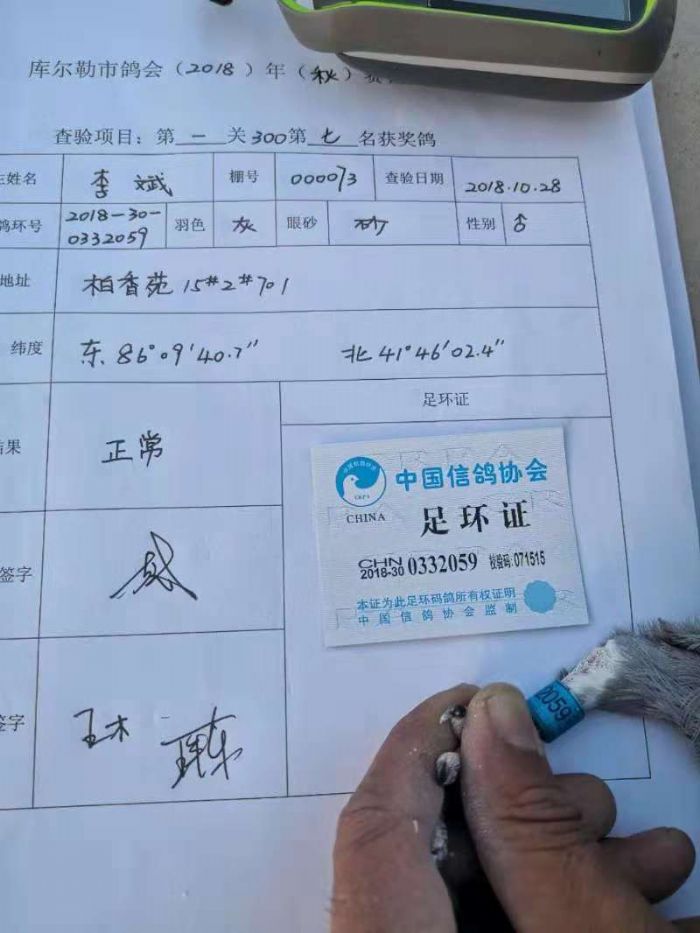 库尔勒市鸽会（2018）年（秋）
查验项目：第一关300第七名获奖鸽
姓名 李斌 棚号 000073 查验日期 2018.10.28
鸽环号 2018-30-0332059 羽色 灰 眼砂 砂 性别 ♂
地址 柏香苑15#2#701
纬度 东86°09'40.7" 北41°46'02.4"
果 正常 足环证
签字
签字 王木
中国信鸽协会
CHINA
足环证
CHN
2018-30 0332059 校验码:071515
本证为此足环码鸽所有权证明
中国信鸽协会监制
2059